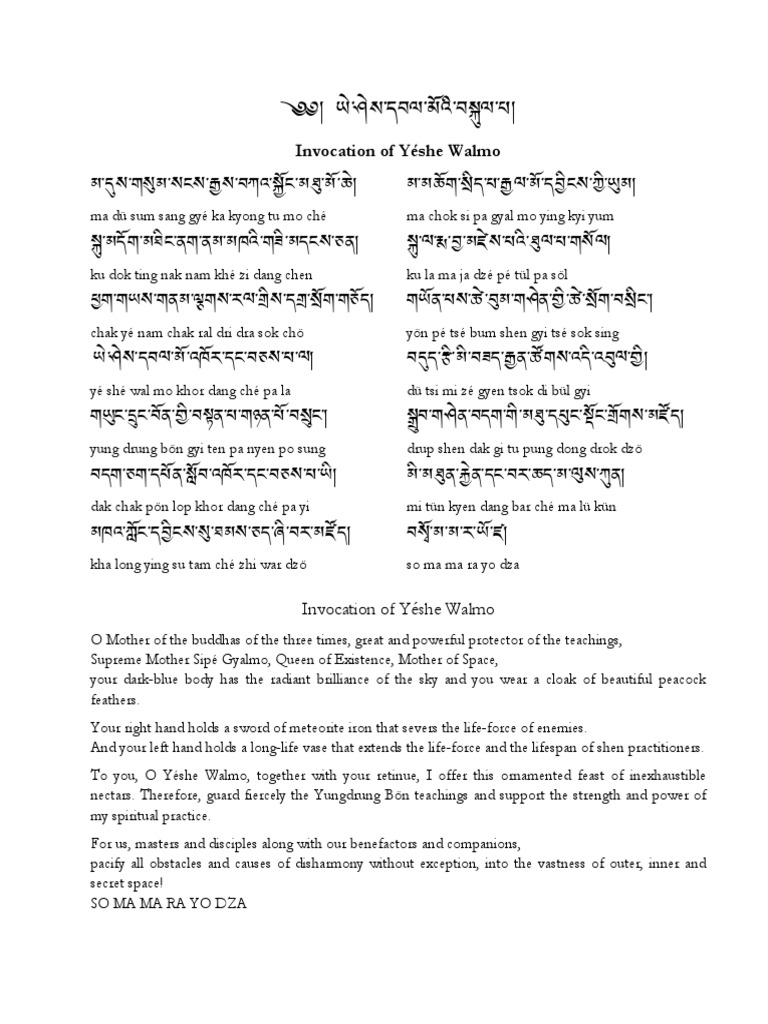 ༄༅། ཡེ་ཤེས་དབལ་མོའི་བསྐུལ་པ།
Invocation of Yéshe Walmo
མ་དུས་གསུམ་སངས་རྒྱས་བཀའ་སྐྱོང་མཐུ་མོ་ཆེ། མ་མཆོག་སྲིད་པ་རྒྱལ་མོ་དབྱིངས་ཀྱི་ཡུམ།
ma dü sum sang gyé ka kyong tu mo ché ma chok si pa gyal mo ying kyi yum
སྐུ་མདོག་མཐིང་ནག་ནམ་མཁའི་གཟི་མདངས་ཅན། སྐུ་ལ་རྨ་བྱ་མཛེས་པའི་ཐུལ་པ་གསོལ།
ku dok ting nak nam khé zi dang chen ku la ma ja dzé pé tül pa söl
ཕྱག་གཡས་གནམ་ལྕགས་རལ་གྲིས་དགྲ་སྲོག་གཅོད། གཡོན་པས་ཚེ་བུམ་གཤེན་གྱི་ཚེ་སྲོག་བསྲིང་།
chak yé nam chak ral dri dra sok chö yön pé tsé bum shen gyi tsé sok sing
ཡེ་ཤེས་དབལ་མོ་འཁོར་དང་བཅས་པ་ལ། བདུད་རྩི་མི་བཟད་རྒྱན་ཚོགས་འདི་འབུལ་གྱི།
yé shé wal mo khor dang ché pa la dü tsi mi zé gyen tsok di bül gyi
གཡུང་དྲུང་བོན་གྱི་བསྟན་པ་གཉན་པོ་བསྲུང་། སྒྲུབ་གཤེན་བདག་གི་མཐུ་དཔུང་སྡོང་གྲོགས་མཛོད།
yung drung bön gyi ten pa nyen po sung drup shen dak gi tu pung dong drok dzö
བདག་ཅག་དཔོན་སློབ་འཁོར་དང་བཅས་པ་ཡི། མི་མཐུན་རྐྱེན་དང་བར་ཆད་མ་ལུས་ཀུན།
dak chak pön lop khor dang ché pa yi mi tün kyen dang bar ché ma lü kün
མཁའ་ཀློང་དབྱིངས་སུ་ཐམས་ཅད་ཞི་བར་མཛོད། བསྭོ་མ་མ་ར་ཡོ་ཛ།
kha long ying su tam ché zhi war dzö so ma ma ra yo dza
Invocation of Yéshe Walmo
O Mother of the buddhas of the three times, great and powerful protector of the teachings,
Supreme Mother Sipé Gyalmo, Queen of Existence, Mother of Space,
your dark-blue body has the radiant brilliance of the sky and you wear a cloak of beautiful peacock
feathers.
Your right hand holds a sword of meteorite iron that severs the life-force of enemies.
And your left hand holds a long-life vase that extends the life-force and the lifespan of shen practitioners.
To you, O Yéshe Walmo, together with your retinue, I offer this ornamented feast of inexhaustible
nectars. Therefore, guard fiercely the Yungdrung Bön teachings and support the strength and power of
my spiritual practice.
For us, masters and disciples along with our benefactors and companions,
pacify all obstacles and causes of disharmony without exception, into the vastness of outer, inner and
secret space!
SO MA MA RA YO DZA